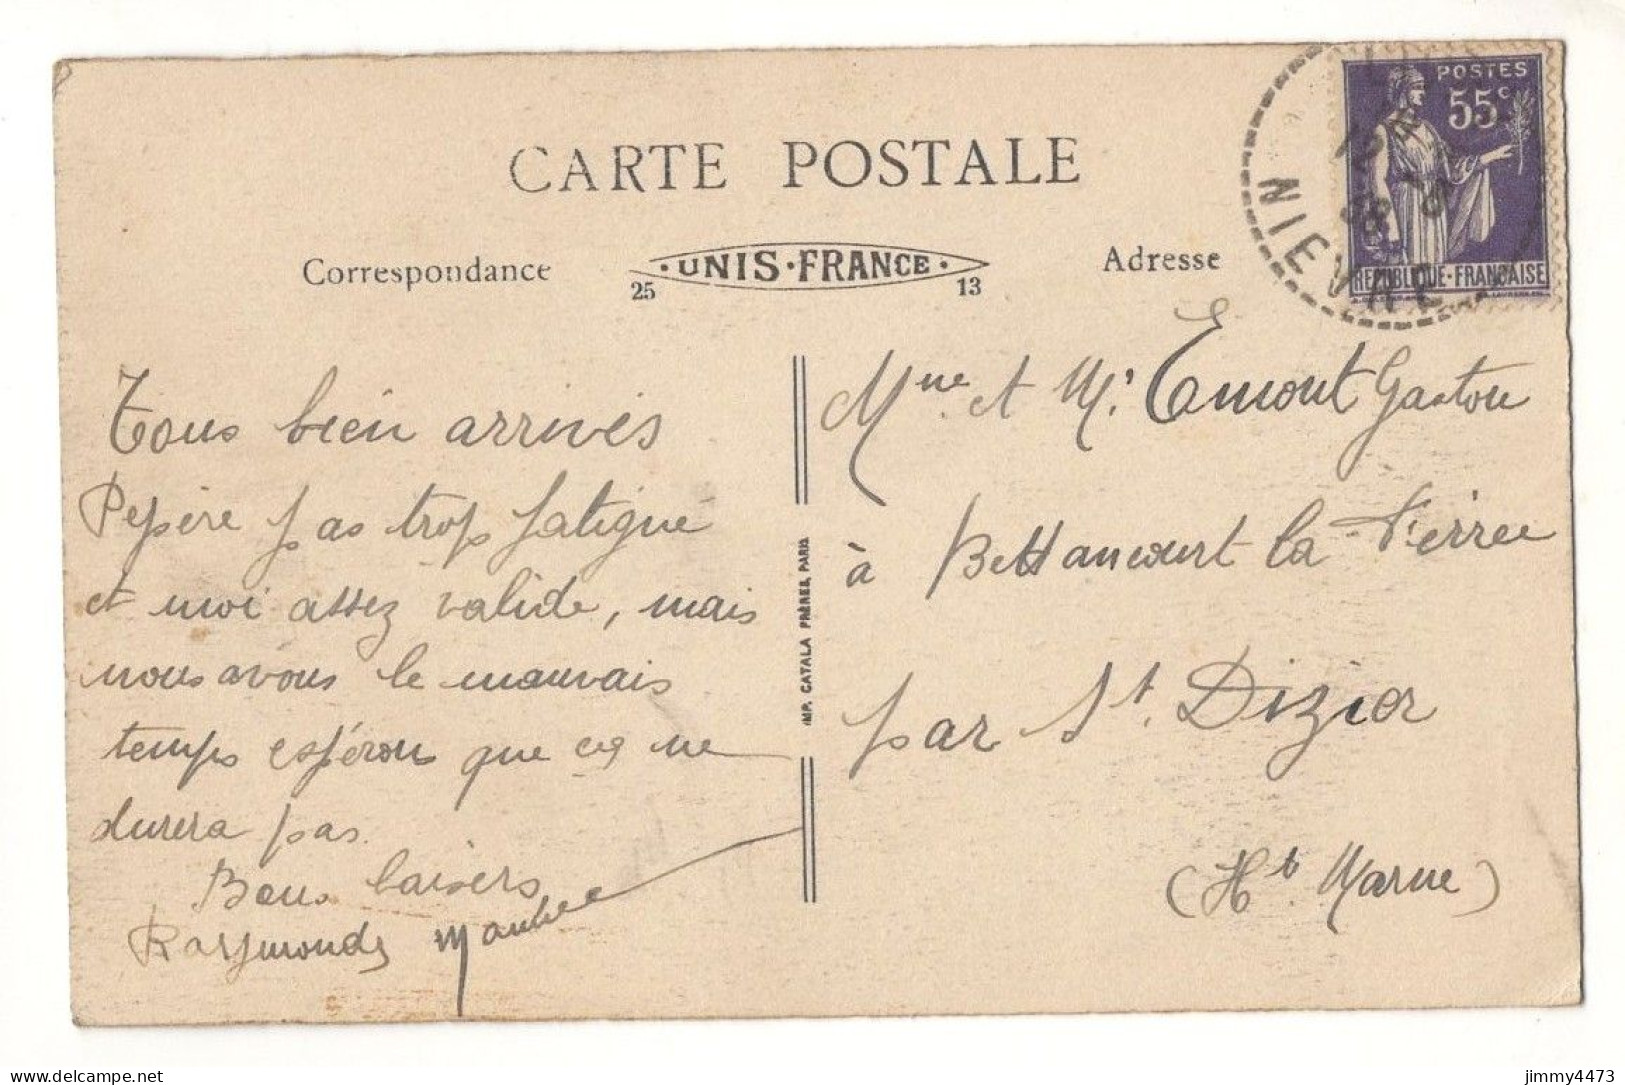 CARTE POSTALE
Correspondance
UNIS·FRANCE
25 13
Adresse
POSTES
55c
REPUBLIQUE·FRANÇAISE
NIEVRE
Tous bien arrivés
Pepère pas trop fatigué
et moi assez valide, mais
nous avons le mauvais
temps espérons que ça ne
durera pas.
Bons baisers
Raymonde
IMP. CATALA FRÈRES, PARIS
Mme et Mr Emont Gaston
à Bettancourt la Ferrée
par St. Dizier
(Hte Marne)
delcampe.net
jimmy4473